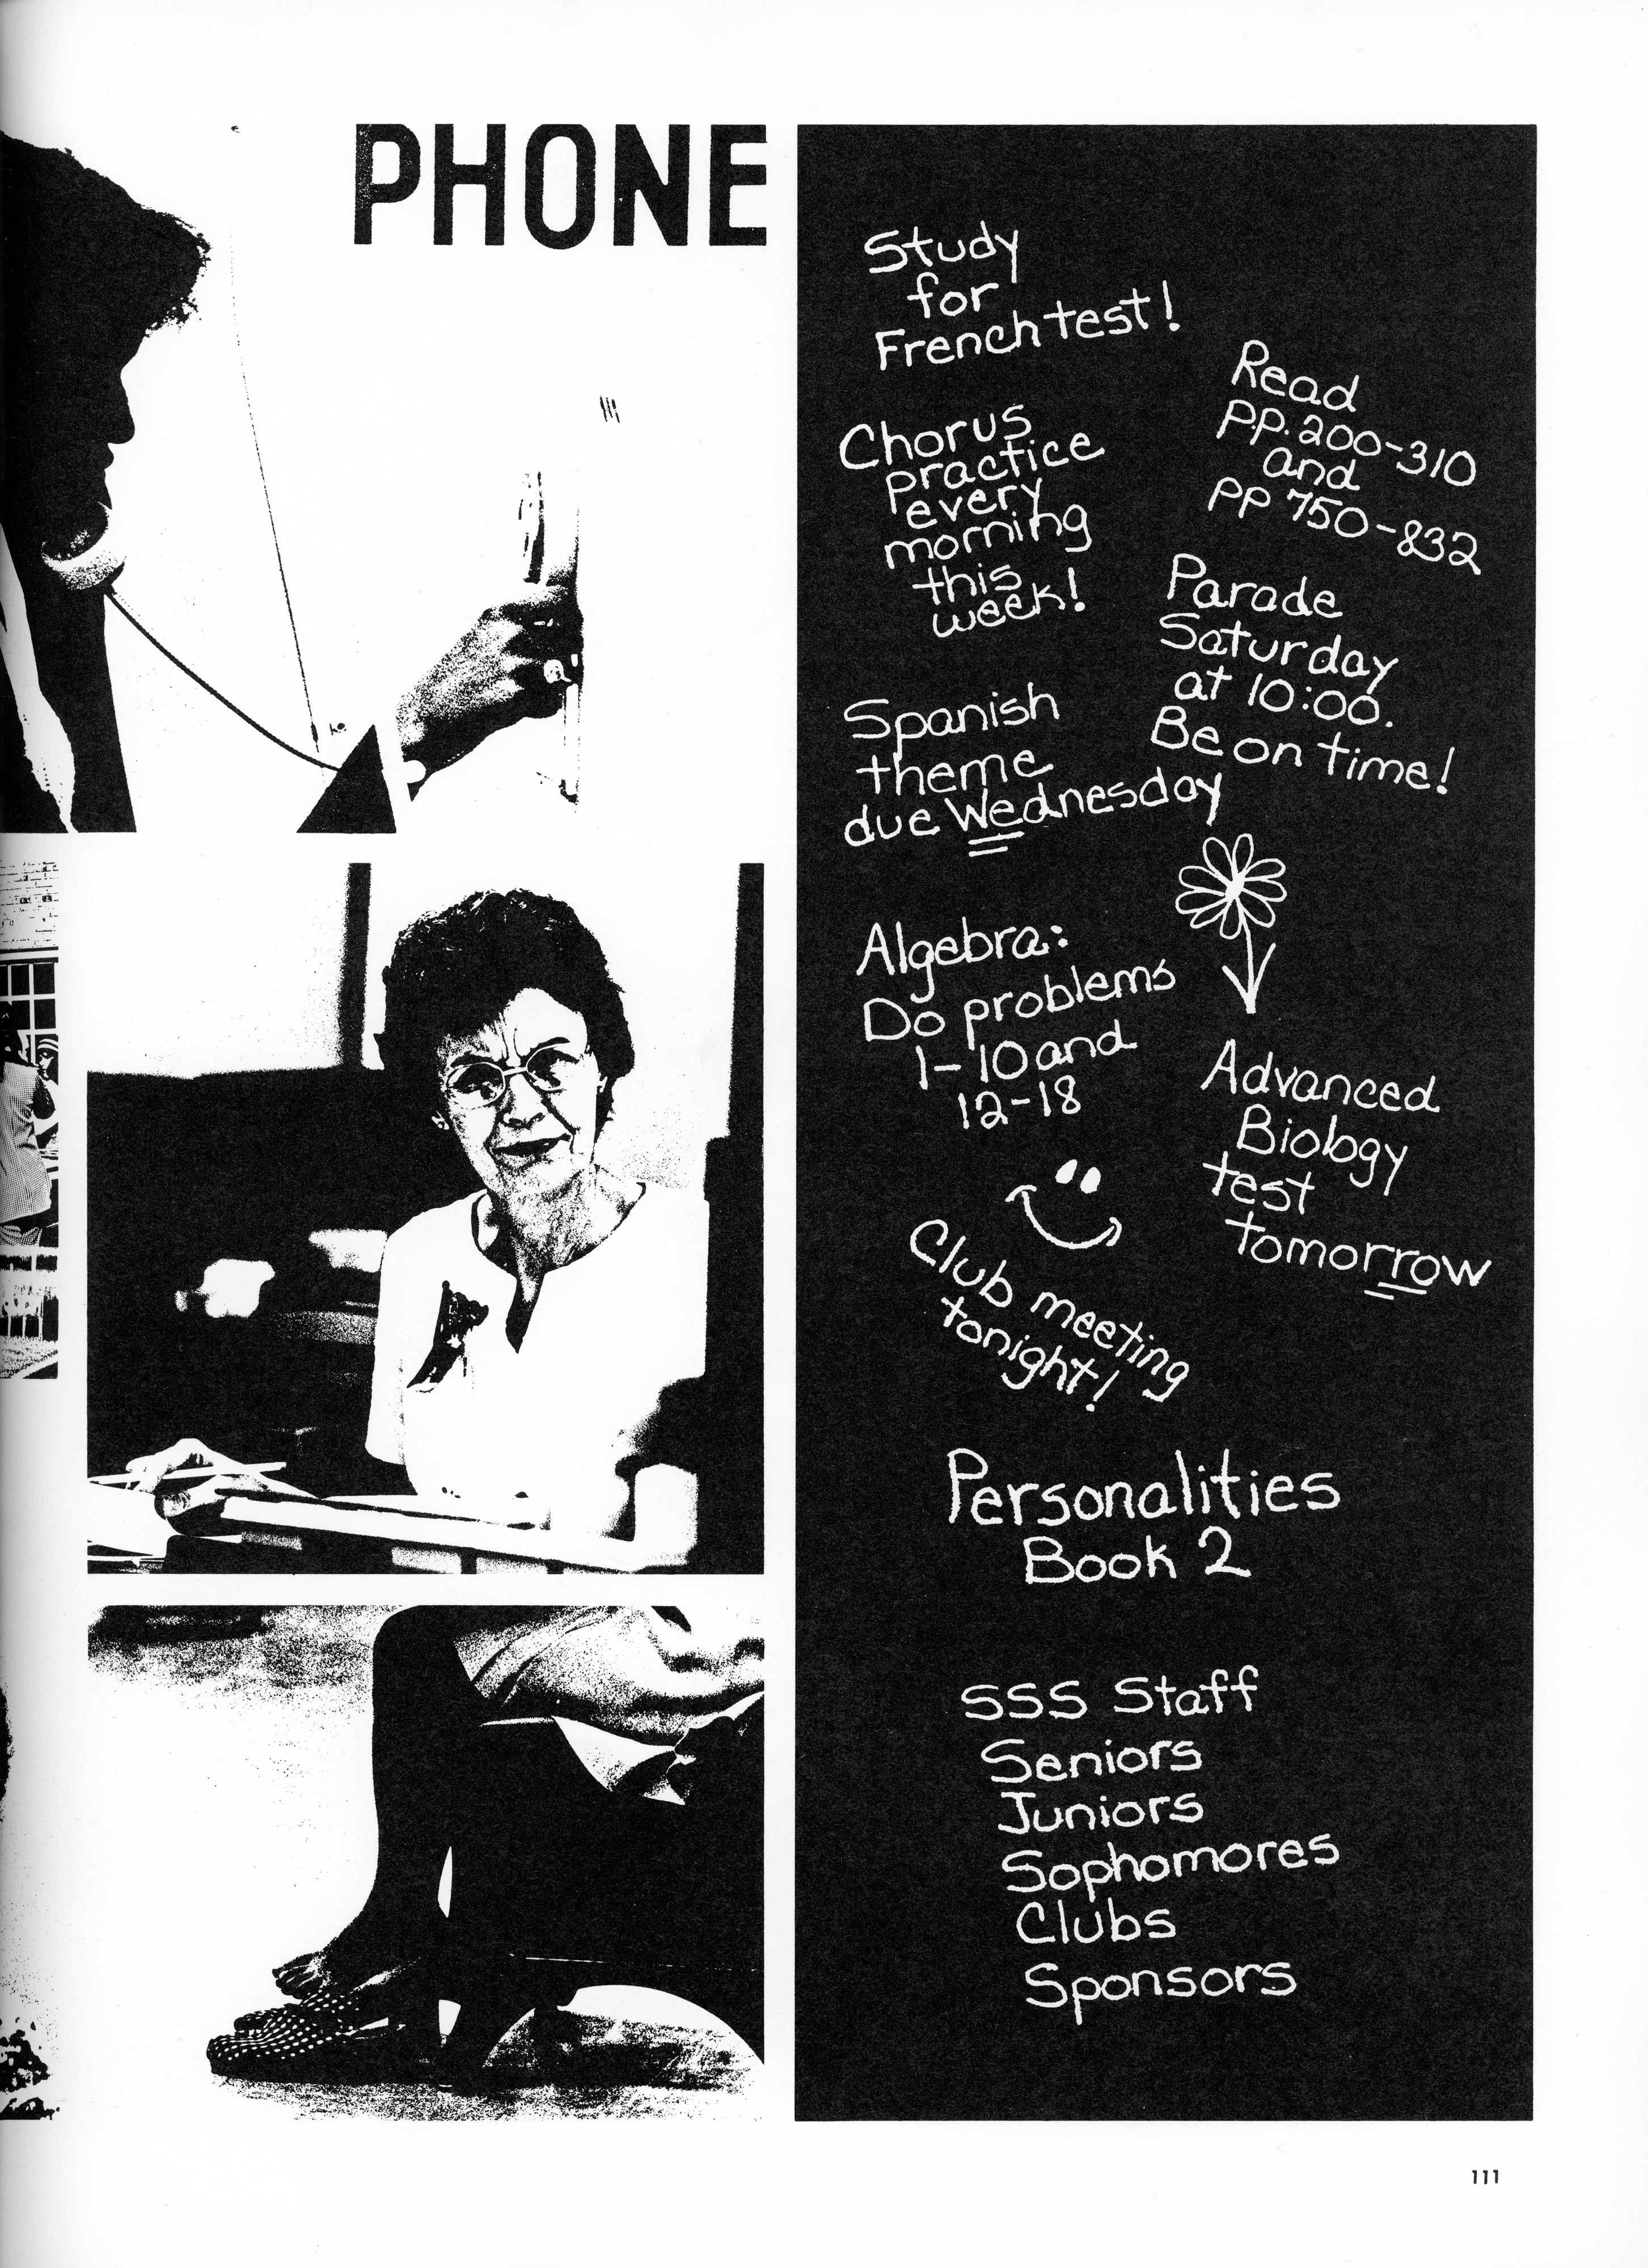 PHONE
Study
for
French test!
Chorus
practice
every
morning
this
week!
Read
P.P. 200-310
and
PP 750-832
Parade
Saturday
at 10:00.
Be on time!
Spanish
theme
due Wednesday
Algebra:
Do problems
1-10 and
12-18
Advanced
Biology
test
tomorrow
Club meeting
tonight!
Personalities
Book 2
SSS Staff
Seniors
Juniors
Sophomores
Clubs
Sponsors
111